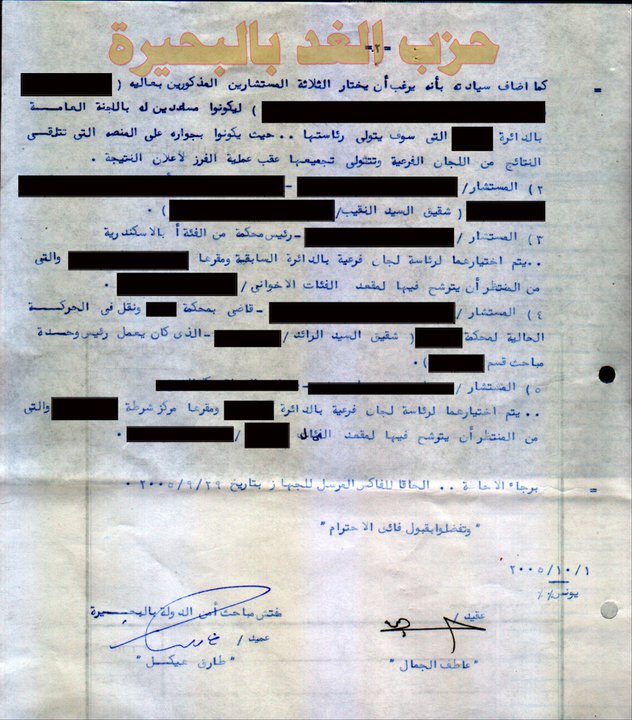 حزب الغد بالبحيرة
=٢=
= كما اضاف سيادته بأنه يرغب أن يختار الثلاثة المستشارين المذكورين بعاليه (
) ليكونوا مساعدين له باللجنة العامة
بالدائرة التى سوف يتولى رئاستها .. حيث يكونوا بجواره على المنصه التى تتلقى
النتائج من اللجان الفرعية وتتولى تجميعها عقب عملية الفرز لاعلان النتيجة .
٢) المستشار/ -
( شقيق السيد النقيب/ ) .
٣) المستشار / -رئيس محكمة من الفئة أ بالاسكندرية
.. يتم اختيارهما لرئاسة لجان فرعية بالدائرة السابقية ومقرها والتى
من المنتظر أن يترشح فيها لمقعد الفئات الاخوانى / .
٤) المستشار/ -قاضى بمحكمة ونقل فى الحركة
الحالية لمحكمة ( شقيق السيد الرائد / -الذى كان يعمل رئيس وحدة
مباحث قسم ) .
٥) المستشار /
.. يتم اختيارهما لرئاسة لجان فرعية بالدائرة ومقرها مركز شرطة والتى
من المنتظر أن يتوشح فيها لمقعد / .
= برجاء الاحاطة .. الحاقا للفاكس المرسل للجهاز بتاريخ ٢٠٠٥/٩/٢٩ .
" وتفضلوا بقبول فائق الاحترام "
٢٠٠٥/١٠/١
يونس٪
عقيد /
" عاطف الجمال "
مفتش مباحث أمن الدولة بالبحيرة
عميد /
" طارق هيكل "